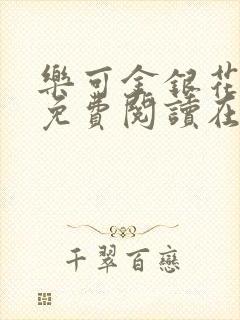 樂可金銀花
免費閱讀在
千翠百戀